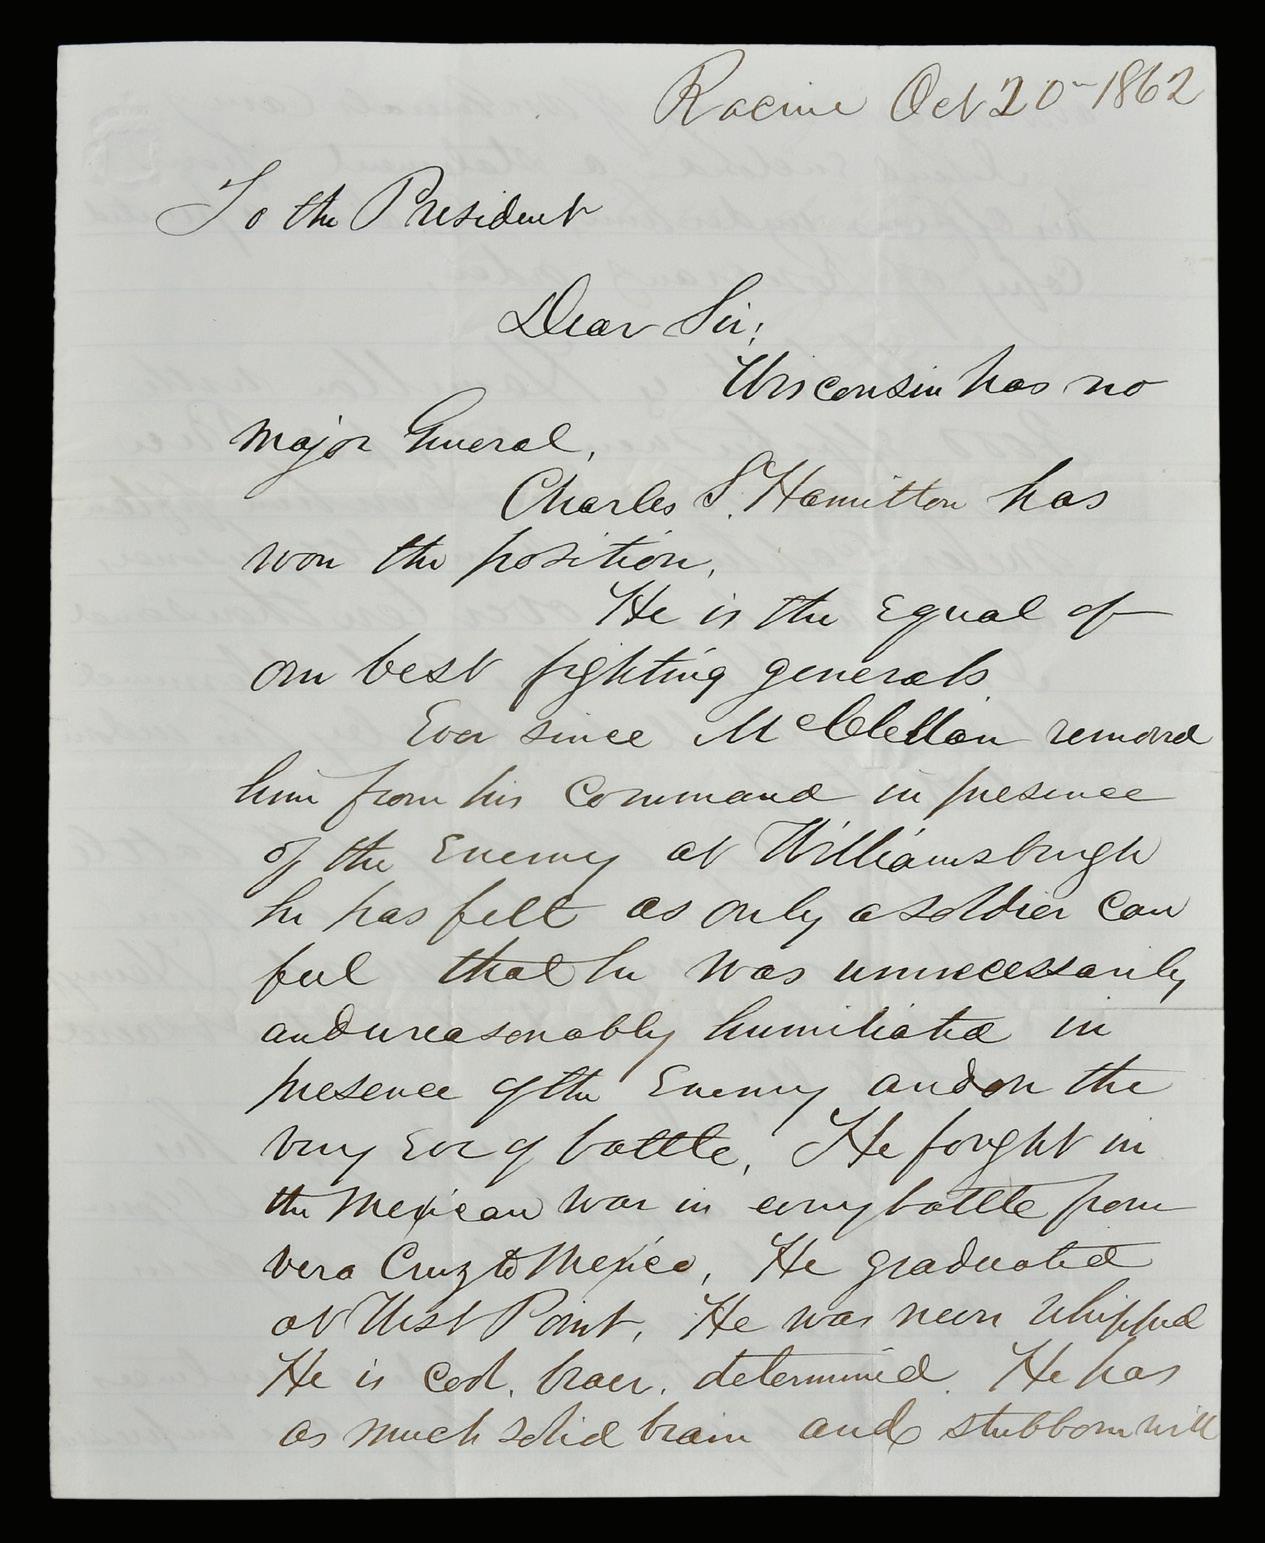 Racine Oct 20th 1862
To the President
Dear Sir;
Wisconsin has no
Major General.
Charles S. Hamilton has
won the position.
He is the equal of
our best fighting generals.
Ever since McClellan removed
him from his command in presence
of the Enemy at Williamsburgh
he has felt as only a soldier can
feel that he was unnecessarily
and unreasonably humiliated in
presence of the Enemy and on the
very Eve of battle. He fought in
the Mexican war in every battle from
Vera Cruz to Mexico. He graduated
at West Point. He was never whipped
He is cool, brave, determined. He has
as much solid brain and stubborn will